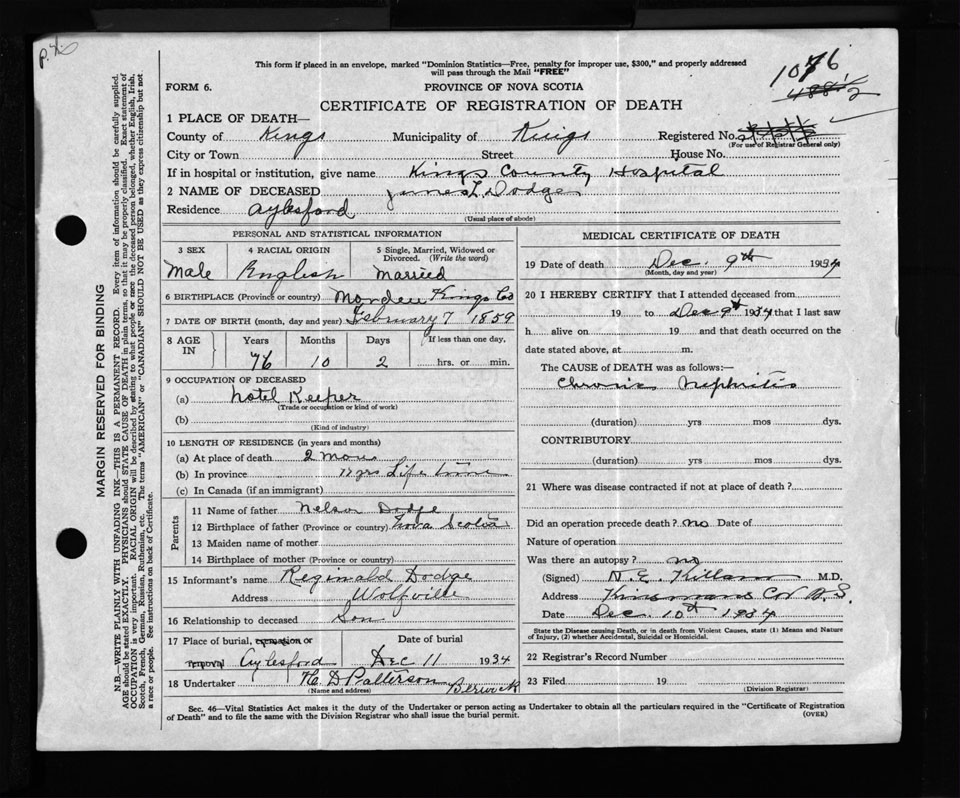 This form if placed in an envelope, marked "Dominion Statistics—Free, penalty for improper use, $300," and properly addressed
will pass through the Mail "FREE"
1076
FORM 6.
PROVINCE OF NOVA SCOTIA
CERTIFICATE OF REGISTRATION OF DEATH
1 PLACE OF DEATH—
County of Kings Municipality of Kings Registered No.
(For use of Registrar General only)
City or Town Street House No.
If in hospital or institution, give name Kings County Hospital
2 NAME OF DECEASED James L. Dodge
Residence Aylesford
(Usual place of abode)
PERSONAL AND STATISTICAL INFORMATION
3 SEX 4 RACIAL ORIGIN 5 Single, Married, Widowed or Divorced. (Write the word)
Male English Married
6 BIRTHPLACE (Province or country) Morden Kings Co
7 DATE OF BIRTH (month, day and year) February 7 1859
8 AGE IN Years Months Days If less than one day,
76 10 2 hrs. or min.
9 OCCUPATION OF DECEASED
(a) Hotel Keeper
(Trade or occupation or kind of work)
(b)
(Kind of industry)
10 LENGTH OF RESIDENCE (in years and months)
(a) At place of death 2 mons
(b) In province Life time
(c) In Canada (if an immigrant)
Parents
11 Name of father Nelson Dodge
12 Birthplace of father (Province or country) Nova Scotia
13 Maiden name of mother
14 Birthplace of mother (Province or country)
15 Informant's name Reginald Dodge
Address Wolfville
16 Relationship to deceased Son
17 Place of burial, cremation or removal Aylesford
Date of burial Dec 11 1934
18 Undertaker H. D Patterson Berwick
(Name and address)
MEDICAL CERTIFICATE OF DEATH
19 Date of death Dec. 9th 1934
(Month, day and year)
20 I HEREBY CERTIFY that I attended deceased from
19 to Dec 9th 1934 that I last saw
h alive on 19 and that death occurred on
date stated above, at m.
The CAUSE of DEATH was as follows:—
Chronic Nephritis
(duration) yrs mos dys.
CONTRIBUTORY
(duration) yrs mos dys.
21 Where was disease contracted if not at place of death?
Did an operation precede death? no Date of
Nature of operation
Was there an autopsy? no
(Signed) M.D.
Address N.S.
Date Dec. 10th 1934
State the Disease causing Death, or in death from Violent Causes, state (1) Means and Nature
of Injury, (2) whether Accidental, Suicidal or Homicidal.
22 Registrar's Record Number
23 Filed 19
(Division Registrar)
Sec. 46—Vital Statistics Act makes it the duty of the Undertaker or person acting as Undertaker to obtain all the particulars required in the "Certificate of Registration
of Death" and to file the same with the Division Registrar who shall issue the burial permit.
(OVER)
MARGIN RESERVED FOR BINDING
N.B.—WRITE PLAINLY WITH UNFADING INK—THIS IS A PERMANENT RECORD. Every item of information should be carefully supplied.
AGE should be stated EXACTLY. PHYSICIANS should STATE CAUSE OF DEATH in plain terms, so that it may be properly classified. Exact statement of
OCCUPATION is very important. RACIAL ORIGIN will be described by stating to what people or race the deceased person belonged, whether English, Irish,
Scotch, French, German, Russian, Ruthenian, etc. The terms "AMERICAN" or "CANADIAN" SHOULD NOT BE USED as they express citizenship but not
a race or people. See instructions on back of Certificate.